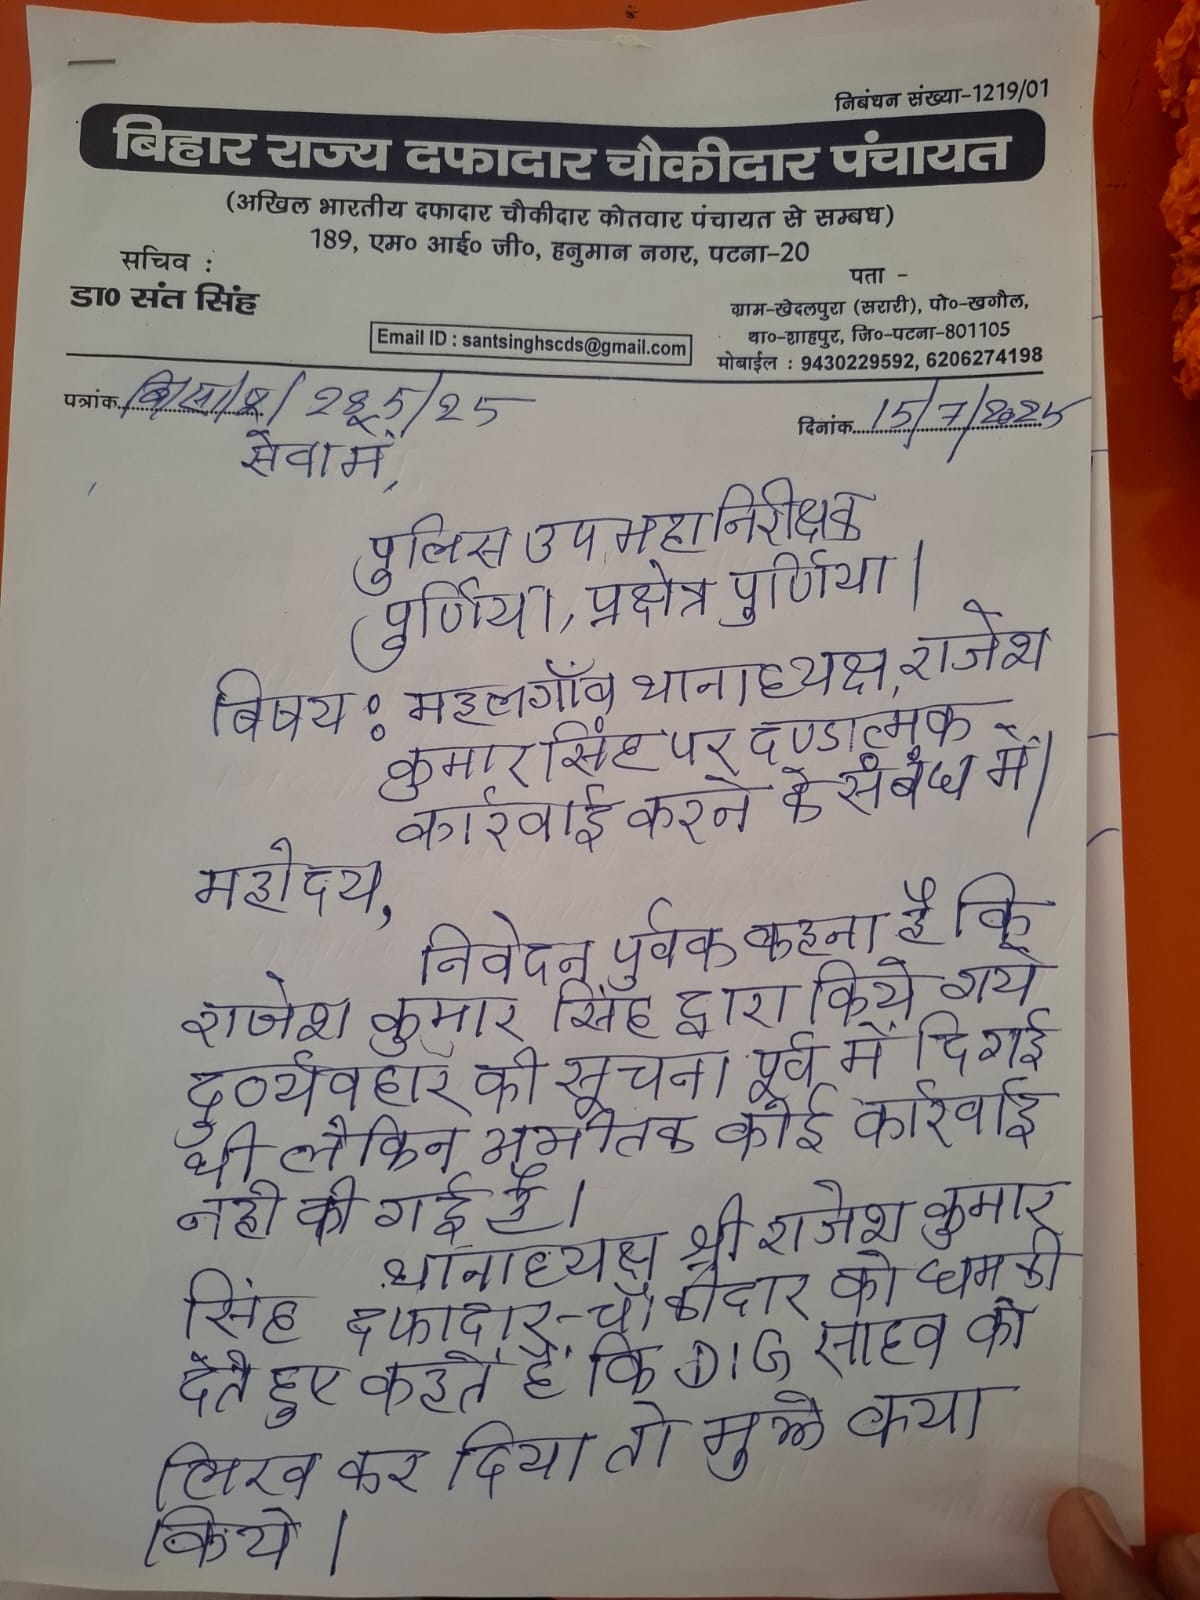 निबंधन संख्या-1219/01
बिहार राज्य दफादार चौकीदार पंचायत
(अखिल भारतीय दफादार चौकीदार कोतवार पंचायत से सम्बध)
189, एम० आई० जी०, हनुमान नगर, पटना-20
सचिव :
डा० संत सिंह
पता -
ग्राम-खेदलपुरा (सरारी), पो०-खगौल,
था०-शाहपुर, जि०-पटना-801105
मोबाईल : 9430229592, 6206274198
Email ID : santsinghscds@gmail.com
पत्रांक
दिनांक 15/7/2025
सेवा में,
पुलिस उप महानिरीक्षक
पुर्णिया, प्रक्षेत्र पुर्णिया।
बिषय : महलगाँव थानाध्यक्ष, राजेश
कुमार सिंह पर दण्डात्मक
कार्रवाई करने के संबंध में।
महोदय,
निवेदन पुर्वक कहना है कि
राजेश कुमार सिंह द्वारा किये गये
दुर्व्यवहार की सूचना पूर्व में दि गई
थी लेकिन अभीतक कोई कार्रवाई
नही की गई है।
थानाध्यक्ष श्री राजेश कुमार
सिंह दफादार-चौकीदार को धमकी
देते हुए कहते हैं कि DIG साहव को
लिख कर दिया तो मुझे क्या
किये।